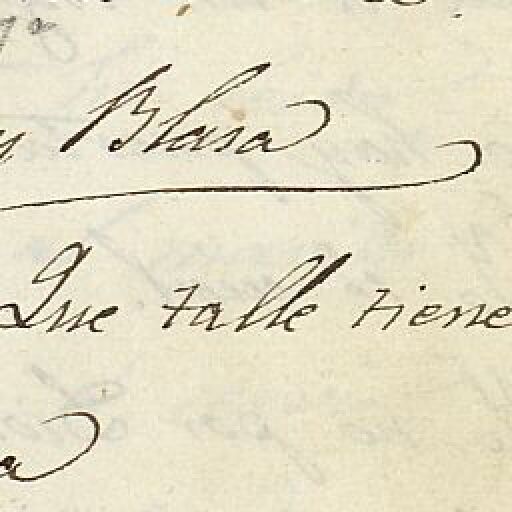 y Blasa
Que talle tiene
a